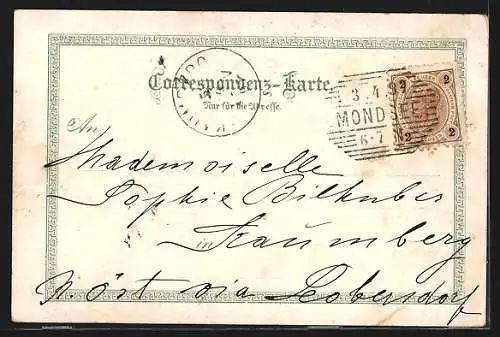 Correspondenz-Karte.
Nur für die Adresse.
2 2
3 4
MONDSEE
6-7
2 2
An
Mademoiselle
Sophie
in Kaumberg
N. Öst via Leobersdorf